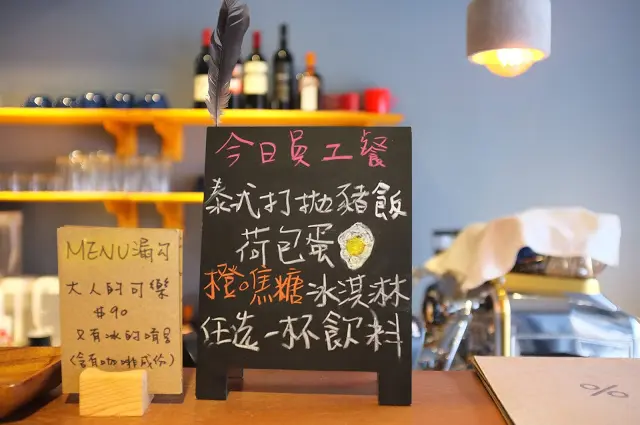 今日員工餐
泰式打拋豬飯
荷包蛋
橙噍糖冰淇淋
任选一杯飲料
MENU漏勾
大人的可樂
$90
只有冰的唷!
(含有咖啡成份)
%